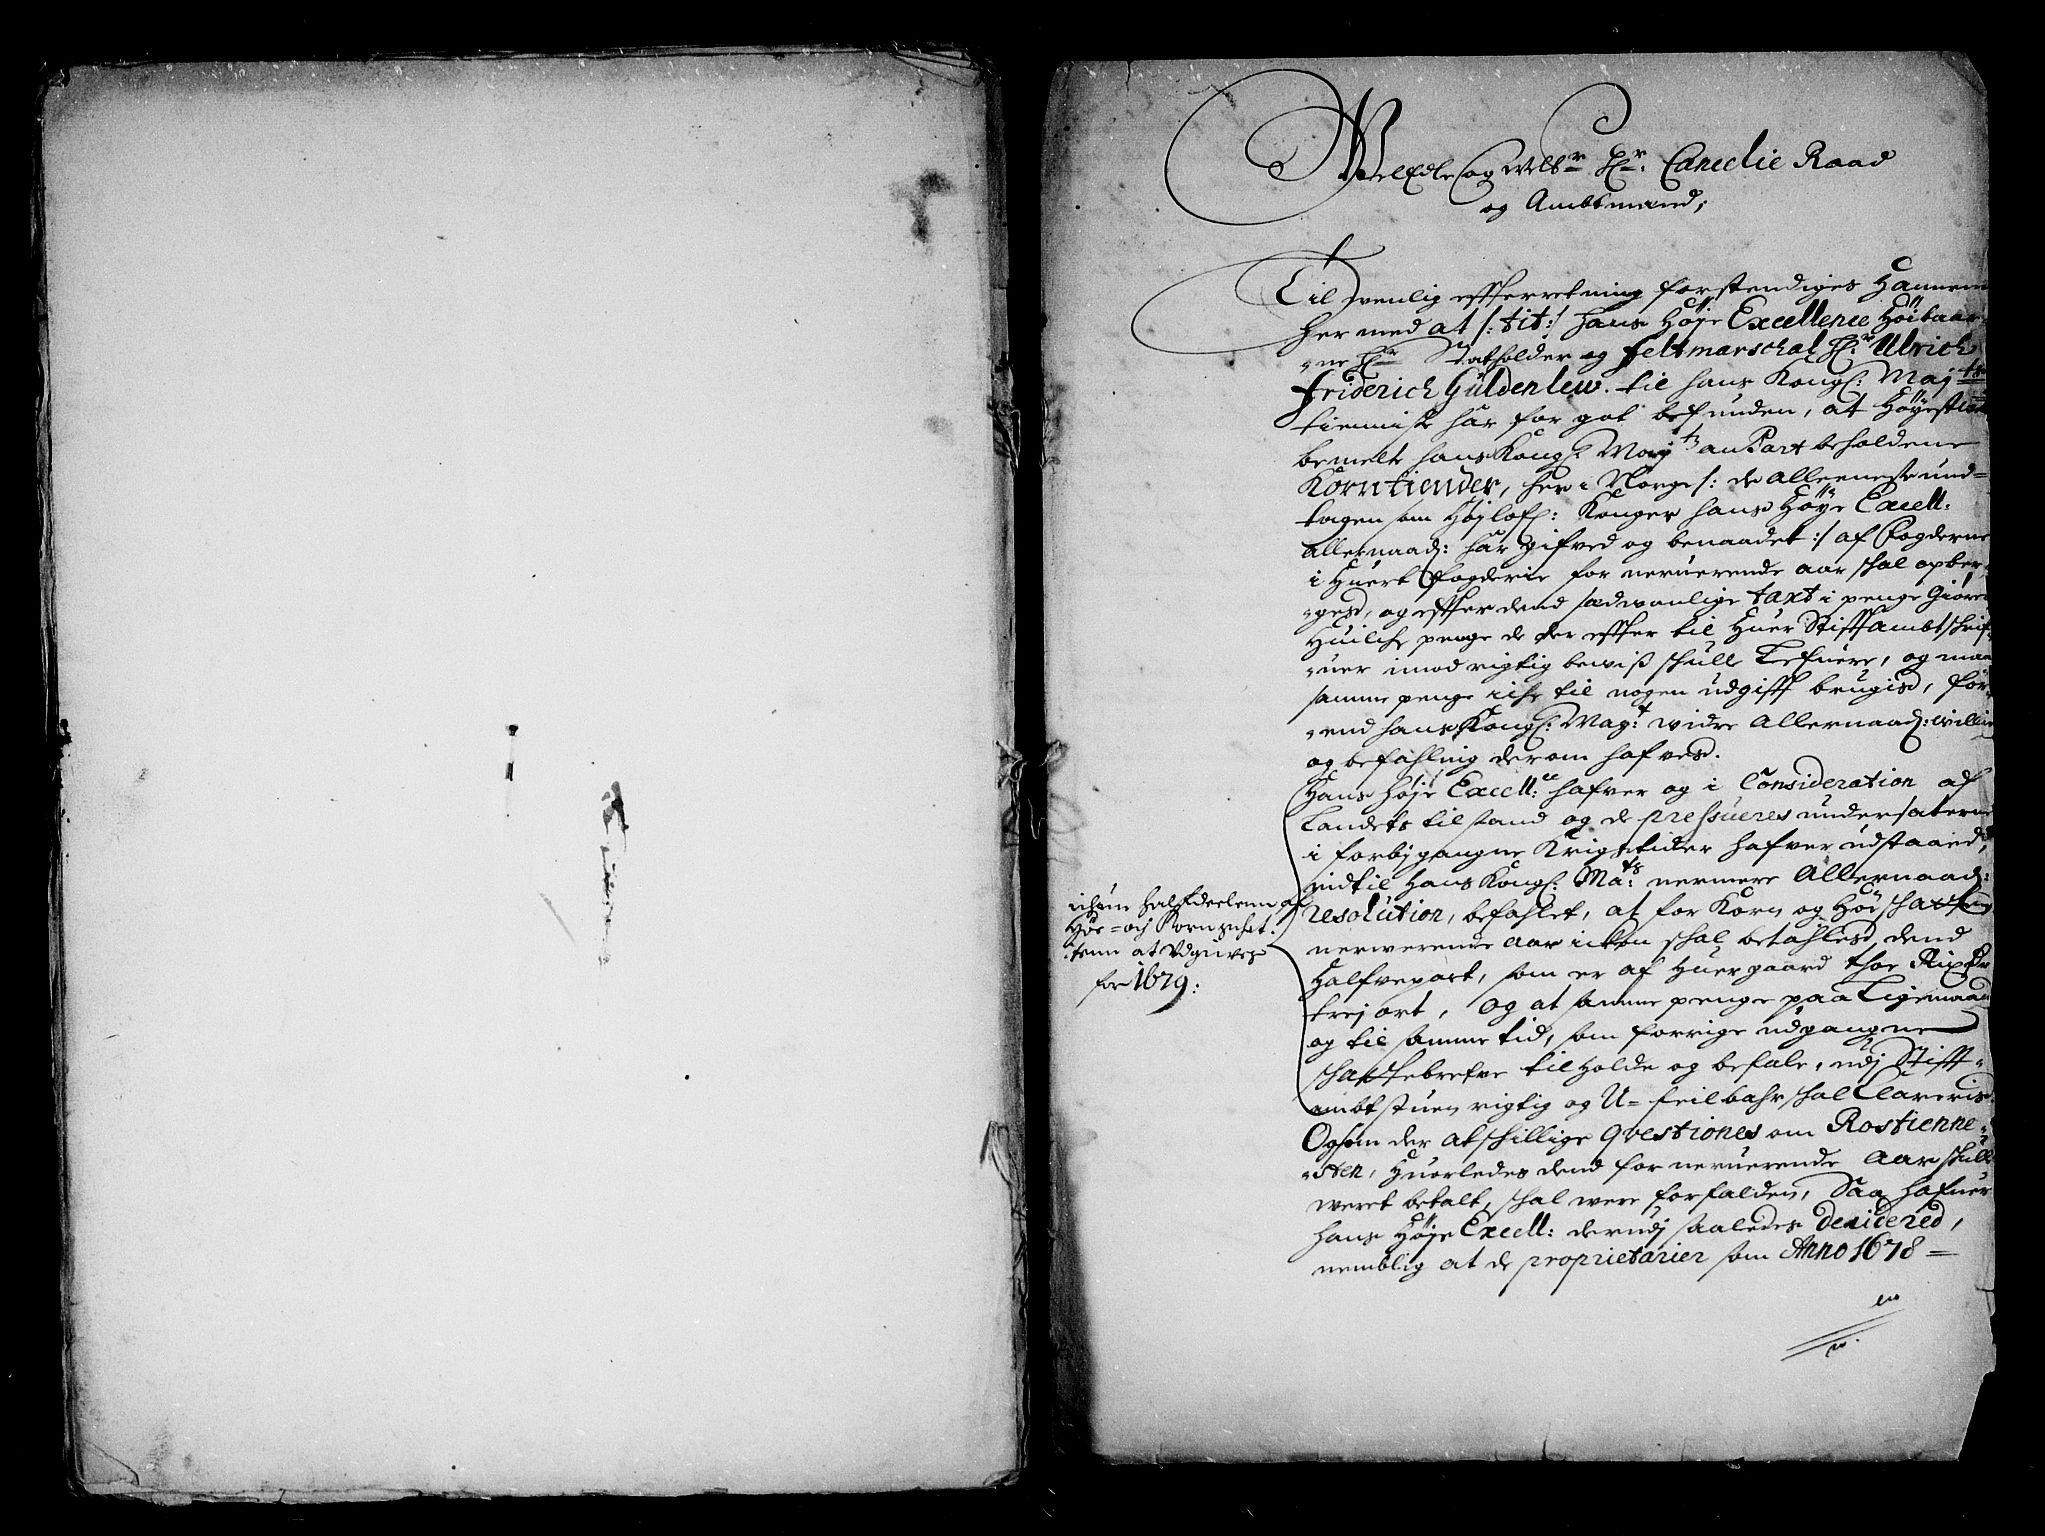 WelEdle og welb.r H.r: Cancelie Raad
og Ambtmand;
Til Venlig effterretning forstendiges Hannem
her med at /: tit: / hans Høje Excellence Høibaar-
-ne H.r Statholder og feltmarschal H.r Ulrich
friderich Güldenlew. til hans Kongl: Maj.ts
tienniste har for got befunden, at Høyest
bemelte hans Kongl: Maj.ts anPart beholdene
Korntiender, her i Norge /: de alleeneste und-
tagen som Højlofl: Konger hans Høye Excell:
allernaad: har gifved og benaadet :/ af fogderne
i Huert fogderie for nerverende aar skal opber-
-ges, og effter dend sædwanlige taxt i penge Giøres
Huilche penge de der effter til Huer Stifftambtschrif-
-uer imod rigtig bewiß skulle Lefuere, og maa
samme penge iche til nogen udgifft brugis, før-
-end hans Kongl: May:t widre Allernaad: willie
og befahling derom hafves.
Hans Høje Excell:ce hafver og i Consideration af
Landets tilstand og de pressueres undersaaterne
i forbigangne Krigstider hafver udstaaed,
indtil Hans Kongl: Ma:ts nermere Allernaad:
resolution, befahlet, at for Korn og Høe schatten
nerwerende aar icken skal betahles, dend
Halfvepart, som er af Huer gaard thoe Rixdr
trej ort, og at samme penge paa Ligemaade
og til samme tid, som forrige udgangne
schattebrefve tilholde og befale, udj Stifft-
ambtstuen rigtig og U=feilbahr skal Clareris.
Ogsom der atskillige qvestiones om Rostienne-
-sten, Huorledes dend for nerverende Aar skulle
weret betalt, skal were forfalden, Saa hafuer
hans Høje Excell: derudj saaledes decidered,
nemblig at de proprietarier som Anno 1678 =
ichun halfdeelenn af
Høe= och Kornschat-
tenn at Udgiwes
for 1679: